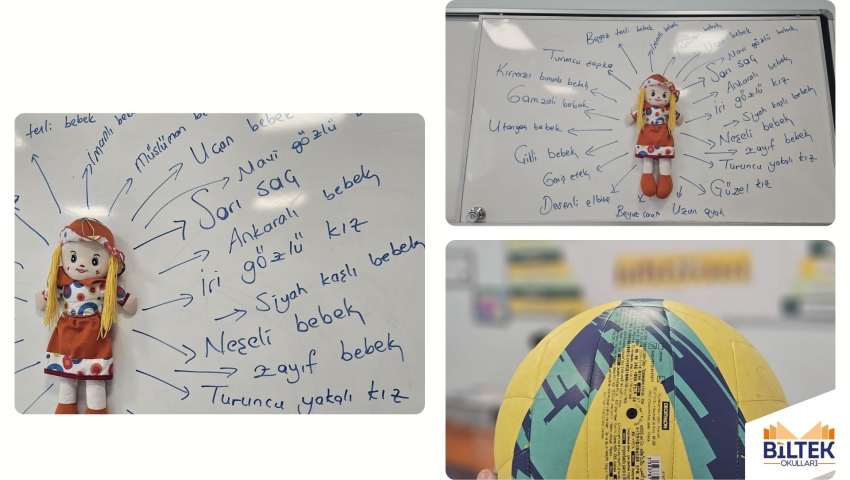 tenli bebek
İmanlı
Müslüman
Ucan bebek
Mavi gözlü
Sarı saç
Ankaralı bebek
İri gözlü kız
Siyah kaşlı bebek
Neşeli bebek
zayıf bebek
Turuncu yakalı kız
Beyaz tenli bebek
Ucan bebek
Turuncu şapka
Mavi gözlü bebek
Kırmızı burunlu bebek
Sarı saç
Gamzeli bebek
Ankaralı bebek
İri gözlü kız
Utangaç bebek
Siyah kaşlı bebek
Neşeli bebek
Çilli bebek
zayıf bebek
Turuncu yakalı kız
Geniş etek
Güzel kız
Desenli elbise
Uzun ayak
BİLTEK
OKULLARI